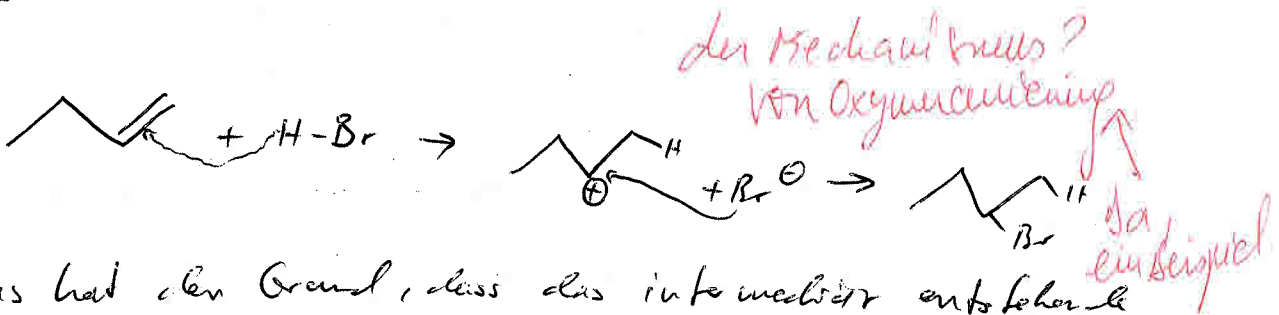 der Mechanismus?
von Oxymercurierung
+ H-Br → H ⊕ + Br ⊖ → H Br
Ja
ein Beispiel
as hat den Grund, dass das intermediär entstehende